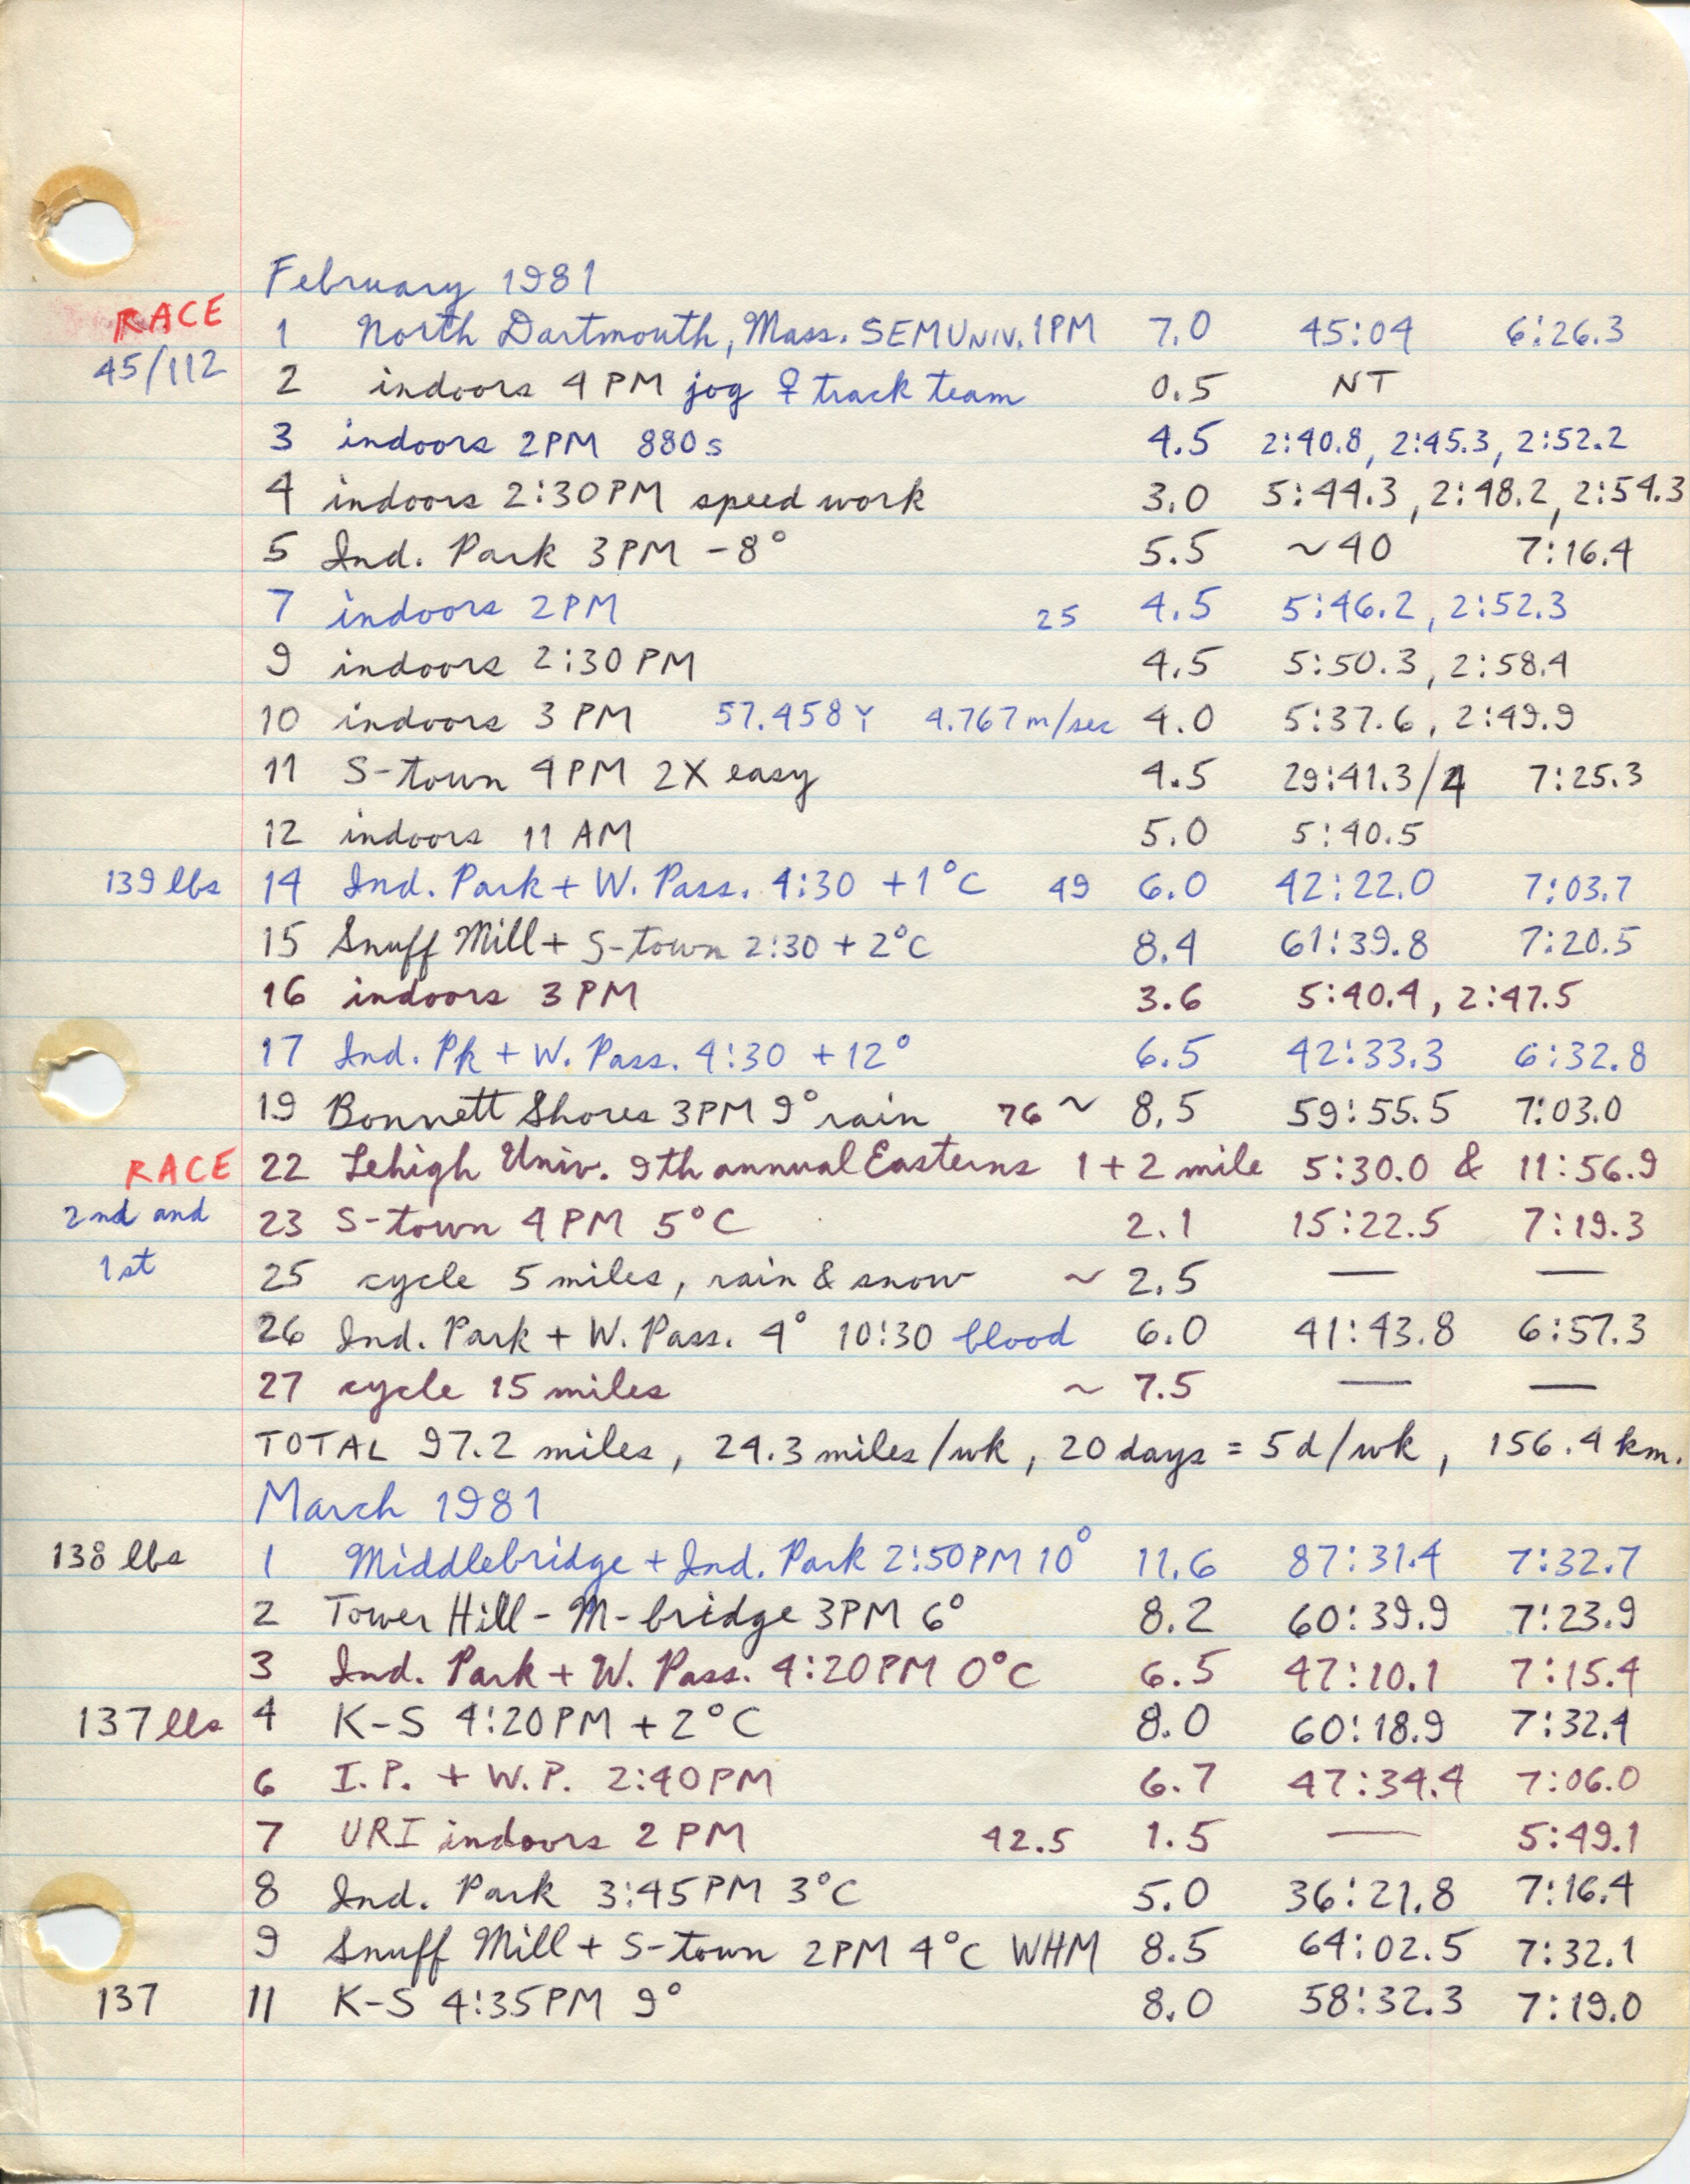 February 1981
RACE 1 North Dartmouth, Mass. SEMUNIV. 1PM 7.0 45:04 6:26.3
45/112 2 indoors 4 PM jog ♀ track team 0.5 NT
3 indoors 2PM 880s 4.5 2:40.8, 2:45.3, 2:52.2
4 indoors 2:30PM speed work 3.0 5:44.3, 2:48.2, 2:54.3
5 Ind. Park 3PM -8° 5.5 ~40 7:16.4
7 indoors 2PM 25 4.5 5:46.2, 2:52.3
9 indoors 2:30 PM 4.5 5:50.3, 2:58.4
10 indoors 3 PM 57.458Y 4.767m/sec 4.0 5:37.6, 2:49.9
11 S-town 4PM 2X easy 4.5 29:41.3/4 7:25.3
12 indoors 11 AM 5.0 5:40.5
139 lbs 14 Ind. Park + W. Pass. 4:30 +1°C 49 6.0 42:22.0 7:03.7
15 Snuff Mill + S-town 2:30 + 2°C 8.4 61:39.8 7:20.5
16 indoors 3 PM 3.6 5:40.4, 2:47.5
17 Ind. Pk + W. Pass. 4:30 +12° 6.5 42:33.3 6:32.8
19 Bonnett Shores 3PM 9° rain 76 ~ 8.5 59:55.5 7:03.0
RACE 22 Lehigh Univ. 9th annual Easterns 1 + 2 mile 5:30.0 & 11:56.9
2nd and 23 S-town 4 PM 5°C 2.1 15:22.5 7:19.3
1st 25 cycle 5 miles, rain & snow ~ 2.5 — —
26 Ind. Park + W. Pass. 4° 10:30 blood 6.0 41:43.8 6:57.3
27 cycle 15 miles ~ 7.5 — —
TOTAL 97.2 miles, 24.3 miles/wk, 20 days = 5d/wk, 156.4 km.
March 1981
138 lbs 1 Middlebridge + Ind. Park 2:50PM 10° 11.6 87:31.4 7:32.7
2 Tower Hill - M-bridge 3PM 6° 8.2 60:39.9 7:23.9
3 Ind. Park + W. Pass. 4:20PM 0°C 6.5 47:10.1 7:15.4
137 lbs 4 K-S 4:20PM + 2°C 8.0 60:18.9 7:32.4
6 I.P. + W.P. 2:40PM 6.7 47:34.4 7:06.0
7 URI indoors 2 PM 42.5 1.5 — 5:49.1
8 Ind. Park 3:45PM 3°C 5.0 36:21.8 7:16.4
9 Snuff Mill + S-town 2PM 4°C WHM 8.5 64:02.5 7:32.1
137 11 K-S 4:35PM 9° 8.0 58:32.3 7:19.0